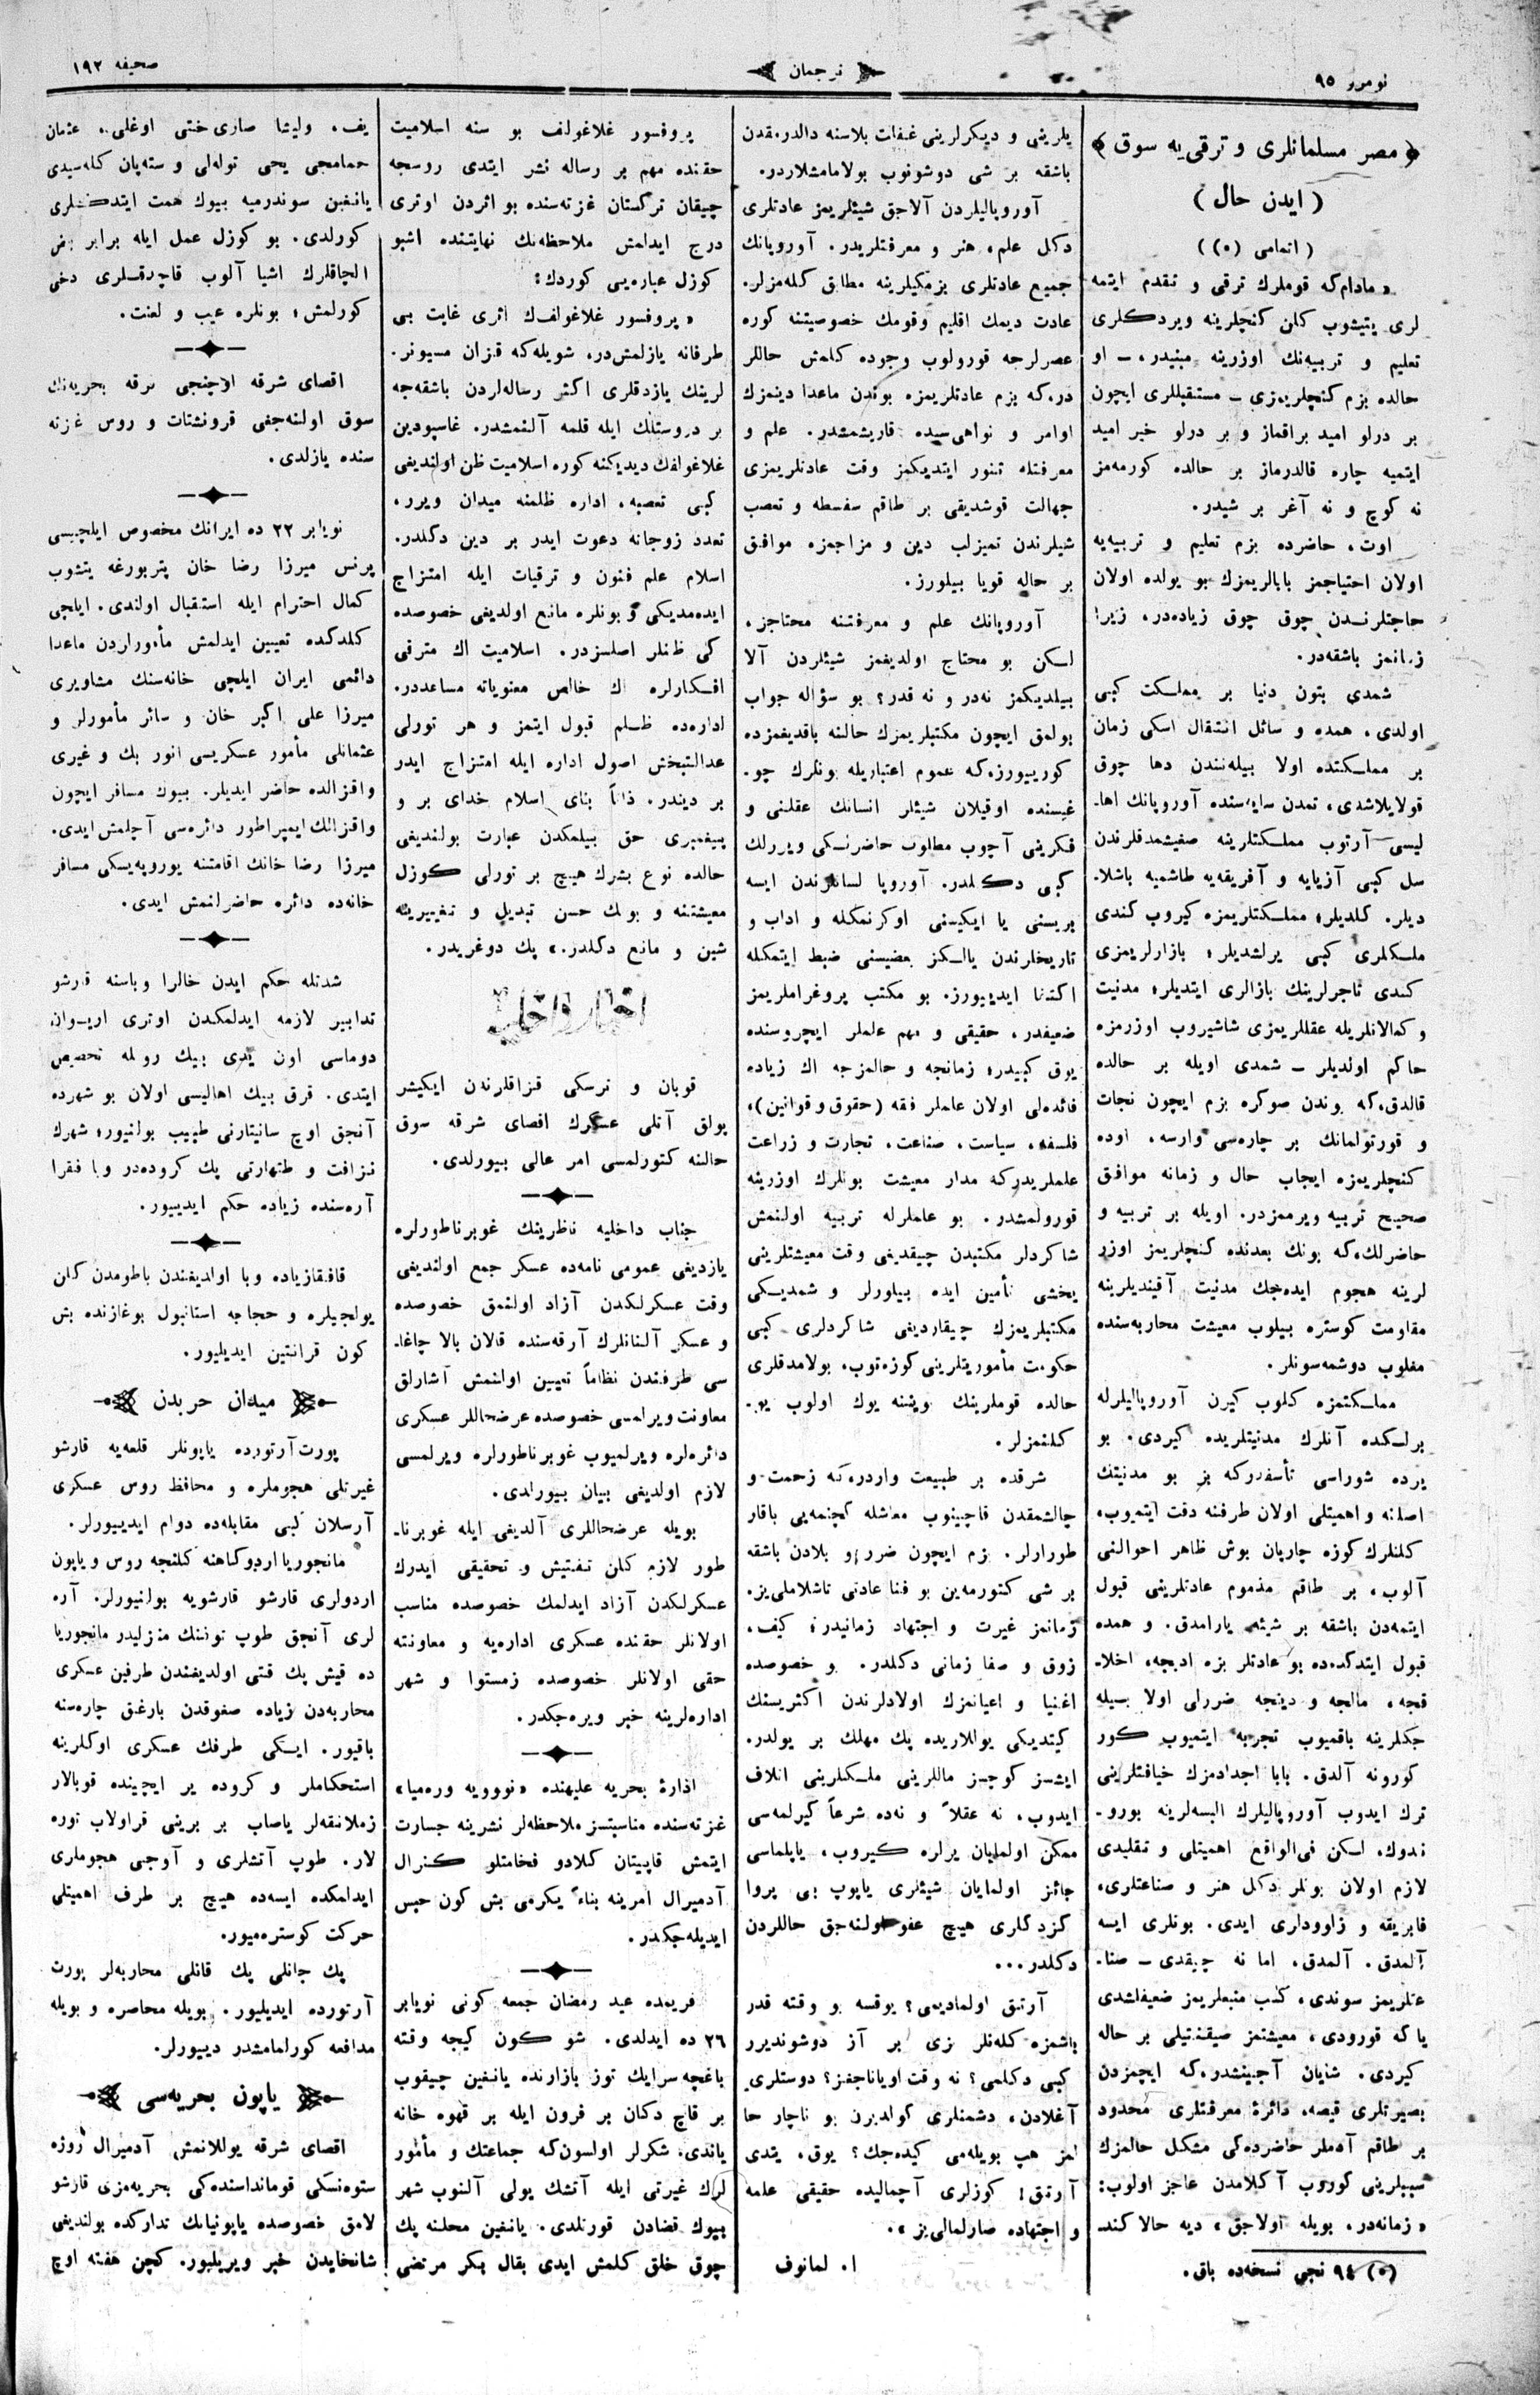 نومرو ٩٥
ترجمان
صحیفه ١٩٢
﴿ مصر مسلمانلری و ترقی‌یه سوق ﴾
( ایدن حال )
( اتمامی (٥) )
« مادام‌که قوملرك ترقی و تقدم ایتمه
لری یتیشوب کلن کنچلرینه ویردکلری
تعلیم و تربیه‌نك اوزرینه مبنیدر، — او
حالده بزم کنچلریمزی — مستقبللری ایچون
بر درلو امید براقماز و بر درلو خیر امید
ایتمیه چاره قالدرماز بر حالده کورمه‌مز
نه کوچ و نه آغر بر شیدر.
اوت، حاضرده بزم تعلیم و تربیه‌یه
اولان احتیاجمز بابالریمزك بو یولده اولان
حاجتلرندن چوق چوق زیاده‌در، زیرا
زمانمز باشقه‌در.
شمدی بتون دنیا بر مملکت کبی
اولدی، همده و سائل انتقال اسکی زمان
بر مملکتده اولا بیله‌نندن دها چوق
قولایلاشدی، تمدن سایه‌سنده آوروپانك اها-
لیسی آرتوب مملکتلرینه صغیشمدقلرندن
سل کبی آزیایه و آفریقه‌یه طاشمیه باشلا-
دیلر. کلدیلر؛ مملکتلریمزه کیروب کندی
ملکلری کبی یرلشدیلر؛ بازارلریمزی
کندی تاجرلرینك بازالری ایتدیلر؛ مدنیت
و کمالاتلریله عقللریمزی شاشیروب اوزرمزه
حاکم اولدیلر — شمدی اویله بر حالده
قالدق،که بوندن صوکره بزم ایچون نجات
و قورتولمانك بر چاره‌سی وارسه، اوده
کنچلریمزه ایجاب حال و زمانه موافق
صحیح تربیه ویرممزدر. اویله بر تربیه و
حاضرلك،که بونك بعدنده کنچلریمز اوزر
لرینه هجوم ایده‌جك مدنیت آقیندیلرینه
مقاومت کوستره بیلوب معیشت محاربه‌سنده
مغلوب دوشمه‌سونلر.
مملکتمزه کلوب کیرن آوروپالیلرله
برلکده آنلرك مدنیتلریده کیردی. بو
یرده شوراسی تأسفدرکه بز بو مدنیتك
اصلنه و اهمیتلی اولان طرفنه دقت ایتمیوب،
کلنلرك کوزه چارپان بوش ظاهر احوالنی
آلوب، بر طاقم مذموم عادتلرینی قبول
ایتمه‌دن باشقه بر شیئه یارامدق. و همده
قبول ایتدگده‌ده بو عادتلر بزه ادبجه، اخلا-
قجه، مالجه و دینجه ضررلی اولا بیله
جکلرینه باقمیوب تجربه ایتمیوب کور
کورونه آلدق. بابا اجدادمزك خیافتلرینی
ترك ایدوب آوروپالیلرك البسه‌لرینه بورو-
ندوك، لکن فی‌الواقع اهمیتلی و تقلیدی
لازم اولان بونلر دکل هنر و صناعتلری،
فابریقه و زاووداری ایدی. بونلری ایسه
آلمدق. آلمدق. اما نه چیقدی — صنا-
عتلریمز سوندی، کسب منبعلریمز ضعیفلشدی
یا که قورودی، معیشتمز صیقنتیلی بر حاله
کیردی. شایان آجینشدر،که ایچمزدن
بصیرتلری قیصه، دائرهٔ معرفتلری محدود
بر طاقم آدملر حاضرده‌کی مشکل حالمزك
سببلرینی کوروب آکلامدن عاجز اولوب:
« زمانه‌در، بویله اولاجق » دیه حالا کند-
(٥) ٩٤ نجی نسخه‌ده باق.
یلرینی و دیکرلرینی غفلت بلاسنه دالدرمقدن
باشقه بر شی دوشونوب بولامامشلاردر.
آوروپالیلردن آلاجق شیئلریمز عادتلری
دکل علم، هنر و معرفتلریدر. آوروپانك
جمیع عادتلری بزمکیلرینه مطابق کله‌مزلر.
عادت دیمك اقلیم وقومك خصوصیتنه کوره
عصرلرجه قورولوب وجوده کلمش حاللر
در،که بزم عادتلریمزه بوندن ماعدا دینمزك
اوامر و نواهی‌سیده قاریشمشدر. علم و
معرفتله تنور ایتدیکمز وقت عادتلریمزی
جهالت قوشدیقی بر طاقم سفسطه و تعصب
شیلرندن تمیزلب دین و مزاجمزه موافق
بر حاله قویا بیلورز.
آوروپانك علم و معرفتنه محتاجز،
لکن بو محتاج اولدیغمز شیئلردن آلا
بیلدیکمز نه‌در و نه قدر؟ بو سؤاله جواب
بولمق ایچون مکتبلریمزك حالنه باقدیغمزده
کورییورزه،که عموم اعتباریله بونلرك چو-
غیسنده اوقیلان شیئلر انسانك عقلنی و
فکرینی آچوب مطلوب حاضرلکی ویررلك
کبی دکلدر. آوروپا لسانلرندن ایسه
بریسنی یا ایکیسنی اوکرنمکله و اداب و
تاریخلرندن یالکز بعضیسنی ضبط ایتمکله
اکتفا ایدییورز. بو مکتب پروغراملریمز
ضعیفدر، حقیقی و مهم علملر ایچروسنده
یوق کبیدر؛ زمانجه و حالمزجه اك زیاده
فائده‌لی اولان علملر فقه (حقوق و قوانین)،
فلسفه، سیاست، صناعت، تجارت و زراعت
علملریدرکه مدار معیشت بونلرك اوزرینه
قورولمشدر. بو علملرله تربیه اولنمش
شاکردلر مکتبدن چیقدیغی وقت معیشتلرینی
یخشی تأمین ایده بیلورلر و شمدیکی
مکتبلریمزك چیقاردیغی شاکردلری کبی
حکومت مأموریتلرینی کوزه‌توب، بولامدقلری
حالده قوملرینك یوك اولوب
کلتمزلر.
شرقده بر طبیعت واردرکه زحمت و
چالشمقدن قاچینوب معاشله کچنمه‌یی باقار
طورارلر. بزم ایچون ضرر و بلادن باشقه
بر شی کتورمه‌ین بو فنا عادتی تاشلاملی‌یز.
زمانمز غیرت و اجتهاد زمانیدر؛ کیف،
زوق و صفا زمانی دکلدر. و خصوصده
اغنیا و اعیانمزك اولادلرندن اکثریسنك
کیتدیکی یوللاریده پك مهلك بر یولدر.
ایشسز کوجسز ماللرینی ملکلرینی اتلاف
ایدوب، نه عقلاً و نه‌ده شرعاً کیرلمه‌سی
ممکن اولمایان یرلره کیروب، یاپلماسی
جائز اولمایان شیئلری یاپوپ بی پروا
کزدکلری هیچ عفو اولنه‌جق حاللردن
دکلدر...
آرتق اولمادیمی؟ یوقسه بو وقته قدر
باشمزه کله‌نلر بزی بر آز دوشوندیرر
کبی دکلمی؟ نه وقت اویاناجغز؟ دوستلری
آغلادن، دشمنلری کولدیرن بو ناچار حا
لمز هپ بویله‌می کیده‌جك؟ یوق، یتدی
آرتق! کوزلری آچمالیده حقیقی علمه
و اجتهاده صارلمالی‌یز ».
ا. لمانوف
پروفسور غلاغولف بو سنه اسلامیت
حقنده مهم بر رساله نشر ایتدی روسجه
چیقان ترکستان غزته‌سنده بو اثردن اوتری
درج ایدلمش ملاحظه‌نك نهایتنده اشبو
کوزل عباره‌یی کوردك:
« پروفسور غلاغولف‌ك اثری غایت بی
طرفانه یازلمش‌در، شویله‌که قزان مسیونر-
لرینك یازدقلری اکثر رساله‌لردن باشقه‌جه
بر دروستلك ایله قلمه آلنمشدر. غاسپودین
غلاغولفك دیدیکنه کوره اسلامیت ظن اولندیغی
کبی تعصبه، اداره ظلمنه میدان ویرر،
تعدد زوجاته دعوت ایدر بر دین دکلدر.
اسلام علم فنون و ترقیات ایله امتزاج
ایده‌مدیکی و بونلره مانع اولدیغی خصوصده
کی ظنلر اصلسزدر. اسلامیت اك مترقی
افکارلره اك خالص معنویاته مساعددر.
اداره‌ده ظلم قبول ایتمز و هر تورلی
عدالتبخش اصول اداره ایله امتزاج ایدر
بر دیندر. ذاتاً بنای اسلام خدای بر و
پیغمبری حق بیلمکدن عبارت بولندیغی
حالده نوع بشرك هیچ بر تورلی کوزل
معیشتنه و بونك حسن تبدیل و تغییرینه
شین و مانع دکلدر.» پك دوغریدر.
اخبار داخلیه
قوبان و ترسکی قزاقلرندن ایکیشر
پولق آتلی عسکرك اقصای شرقه سوق
حالنه کتورلمسی امر عالی بیورلدی.
جناب داخلیه ناظرینك غوبرناطورلره
یازدیغی عمومی نامه‌ده عسکر جمع اولندیغی
وقت عسکرلکدن آزاد اولنمق خصوصده
و عسکر آلنانلرك آرقه‌سنده قالان بالا چاغا-
سی طرفندن نظاماً تعیین اولنمش آشارلق
معاونت ویرلمسی خصوصده عرضحاللر عسکری
دائره‌لره ویرلمیوب غوبرناطورلره ویرلمسی
لازم اولدیغی بیان بیورلدی.
بویله عرضحاللری آلدیغی ایله غوبرنا-
طور لازم کلن تفتیش و تحقیقی ایدرك
عسکرلکدن آزاد ایدلمك خصوصده مناسب
اولانلر حقنده عسکری اداره‌یه و معاونته
حقی اولانلر خصوصده زمستوا و شهر
اداره‌لرینه خبر ویره‌جکدر.
ادارهٔ بحریه علیهنده «نووویه وره‌میا»
غزته‌سنده مناسبتسز ملاحظه‌لر نشرینه جسارت
ایتمش قاپیتان کلادو فخامتلو کنرال
آدمیرال امرینه بناءً یکرمی بش کون حبس
ایدیله‌جکدر.
قریمده عید رمضان جمعه کونی نویابر
٢٦ ده ایدلدی. شو کون کیجه وقته
باغچه‌سرایك توز بازارنده یانغین چیقوب
بر قاچ دکان بر فرون ایله بر قهوه خانه
یاندی. شکرلر اولسون‌که جماعتك و مأمور
لرك غیرتی ایله آتشك یولی آلنوب شهر
بیوك قضادن قورتلدی. یانغین محلنه پك
چوق خلق کلمش ایدی بقال بکر مرتضی
یف، ولیشا صاری‌ختی اوغلی، عثمان
حمامجی یحی توله‌لی و سته‌پان کله‌سیدی
یانغین سوندرمیه بیوك همت ایتدکلری
کورلدی. بو کوزل عمل ایله برابر بعض
الچاقلرك اشیا آلوب قاچردقلری دخی
کورلمش؛ بونلره عیب و لعنت.
اقصای شرقه اوچنجی فرقه بحریه‌نك
سوق اولنه‌جغی قرونشتات و روس غزته
سنده یازلدی.
نویابر ٢٢ ده ایرانك مخصوص ایلچیسی
پرنس میرزا رضا خان پتربورغه یتشوب
کمال احترام ایله استقبال اولندی. ایلچی
کلدکده تعیین ایدلمش مأمورلردن ماعدا
دائمی ایران ایلچی خانه‌سنك مشاویری
میرزا علی اکبر خان و سائر مأمورلر و
عثمانلی مأمور عسکریسی انور بك و غیری
واقزالده حاضر ایدیلر. بیوك مسافر ایچون
واقزالك ایمپراطور دائره‌سی آچلمش ایدی.
میرزا رضا خانك اقامتنه یوروپه‌یسکی مسافر
خانه‌ده دائره حاضرلنمش ایدی.
شدتله حکم ایدن خالرا وباسنه قارشو
تدابیر لازمه ایدلمکدن اوتری اریوان
دوماسی اون یدی بیك روبله تخصیص
ایتدی. قرق بیك اهالیسی اولان بو شهرده
آنجق اوچ سانیتارنی طبیب بولنیور؛ شهرك
نزافت و طهارتی پك کروده‌در وبا فقرا
آره‌سنده زیاده حکم ایدییور.
قافقازیاده وبا اولدیغندن باطومدن کلن
یولجیلره و حجاجه استانبول بوغازنده بش
کون قرانتین ایدیلیور.
میدان حربدن
پورت آرتورده یاپونلر قلعه‌یه قارشو
غیرتلی هجوملره و محافظ روس عسکری
آرسلان کبی مقابله‌ده دوام ایدییورلر.
مانجوریا اردوکاهنه کلنجه روس و یاپون
اردولری قارشو قارشویه بولنیورلر. آره
لری آنجق طوپ توتننك منزلیدر مانجوریا
ده قیش پك قتی اولدیغندن طرفین عسکری
محاربه‌دن زیاده صغوقدن بارنمق چاره‌سنه
باقیور. ایکی طرفك عسکری اوکلرینه
استحکاملر و کروده یر ایچینده قوبالار
زملانقه‌لر یاصاب بر برینی قراولاب توره
لار. طوپ آتشلری و آوجی هجوملری
ایدلمکده ایسه‌ده هیچ بر طرف اهمیتلی
حرکت کوستره‌میور.
پك جانلی پك قانلی محاربه‌لر پورت
آرتورده ایدیلیور. بویله محاصره و بویله
مدافعه کورلمامشدر دییورلر.
یاپون بحریه‌سی
اقصای شرقه یوللانمش آدمیرال روژه
ستوه‌نسکی قومانداسنده‌کی بحریه‌مزی قارشو
لامق خصوصده یاپونیانك تدارکده بولندیغی
شانخایدن خبر ویریلیور. کچن هفته اوچ